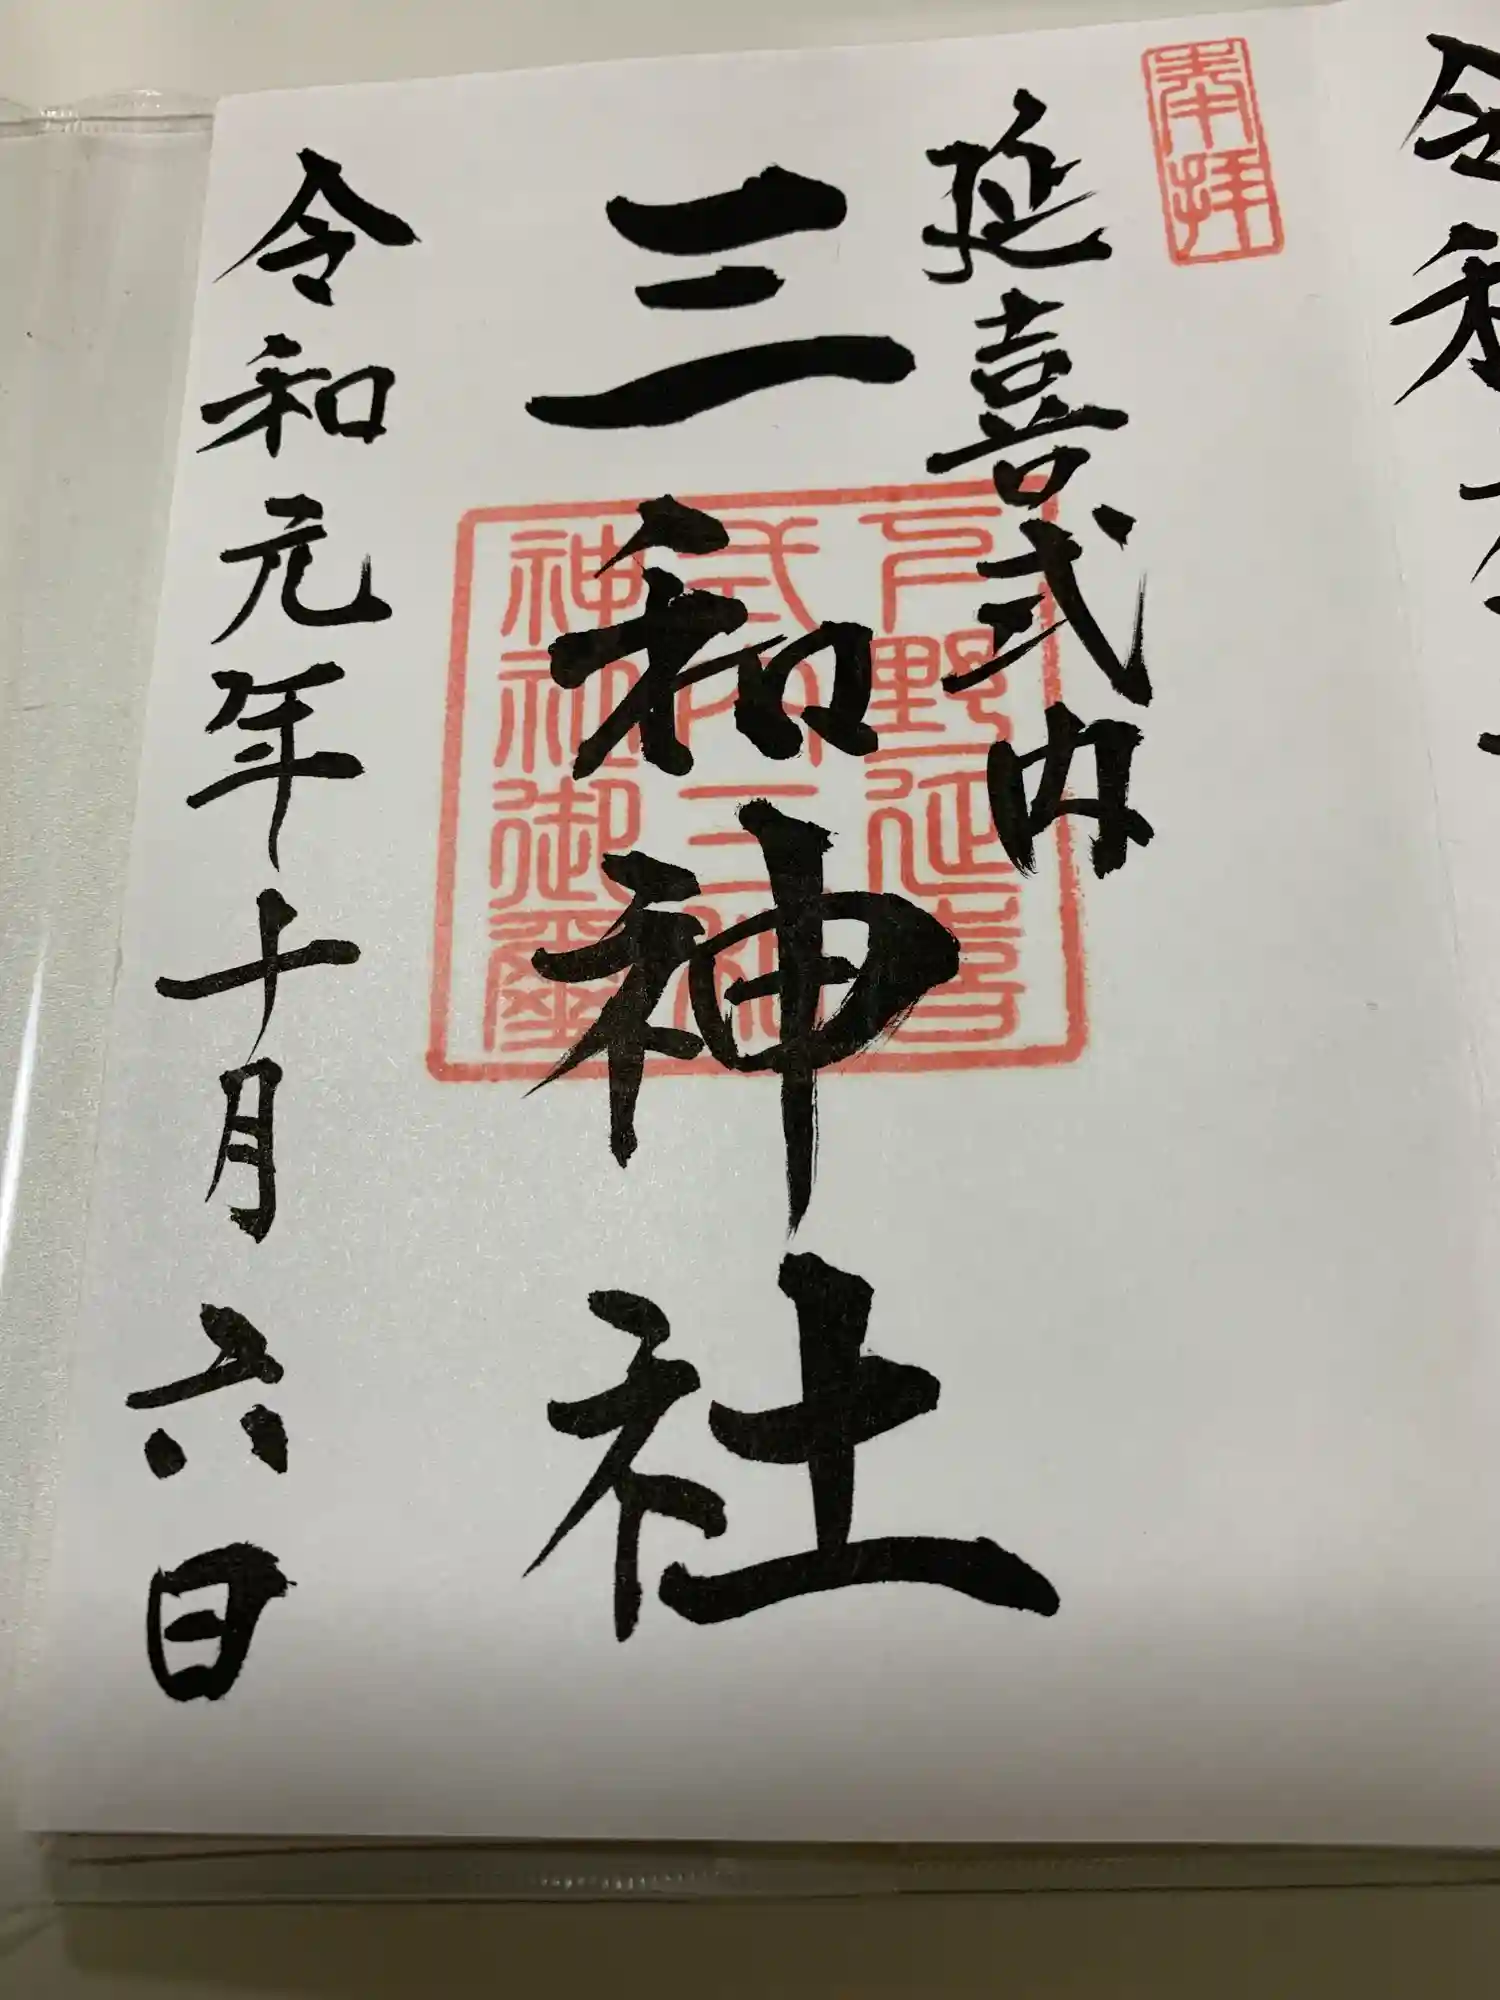 奉拝
延喜式内
三和神社
下野延喜
式内三和
神社御璽
令和元年十月六日
令和